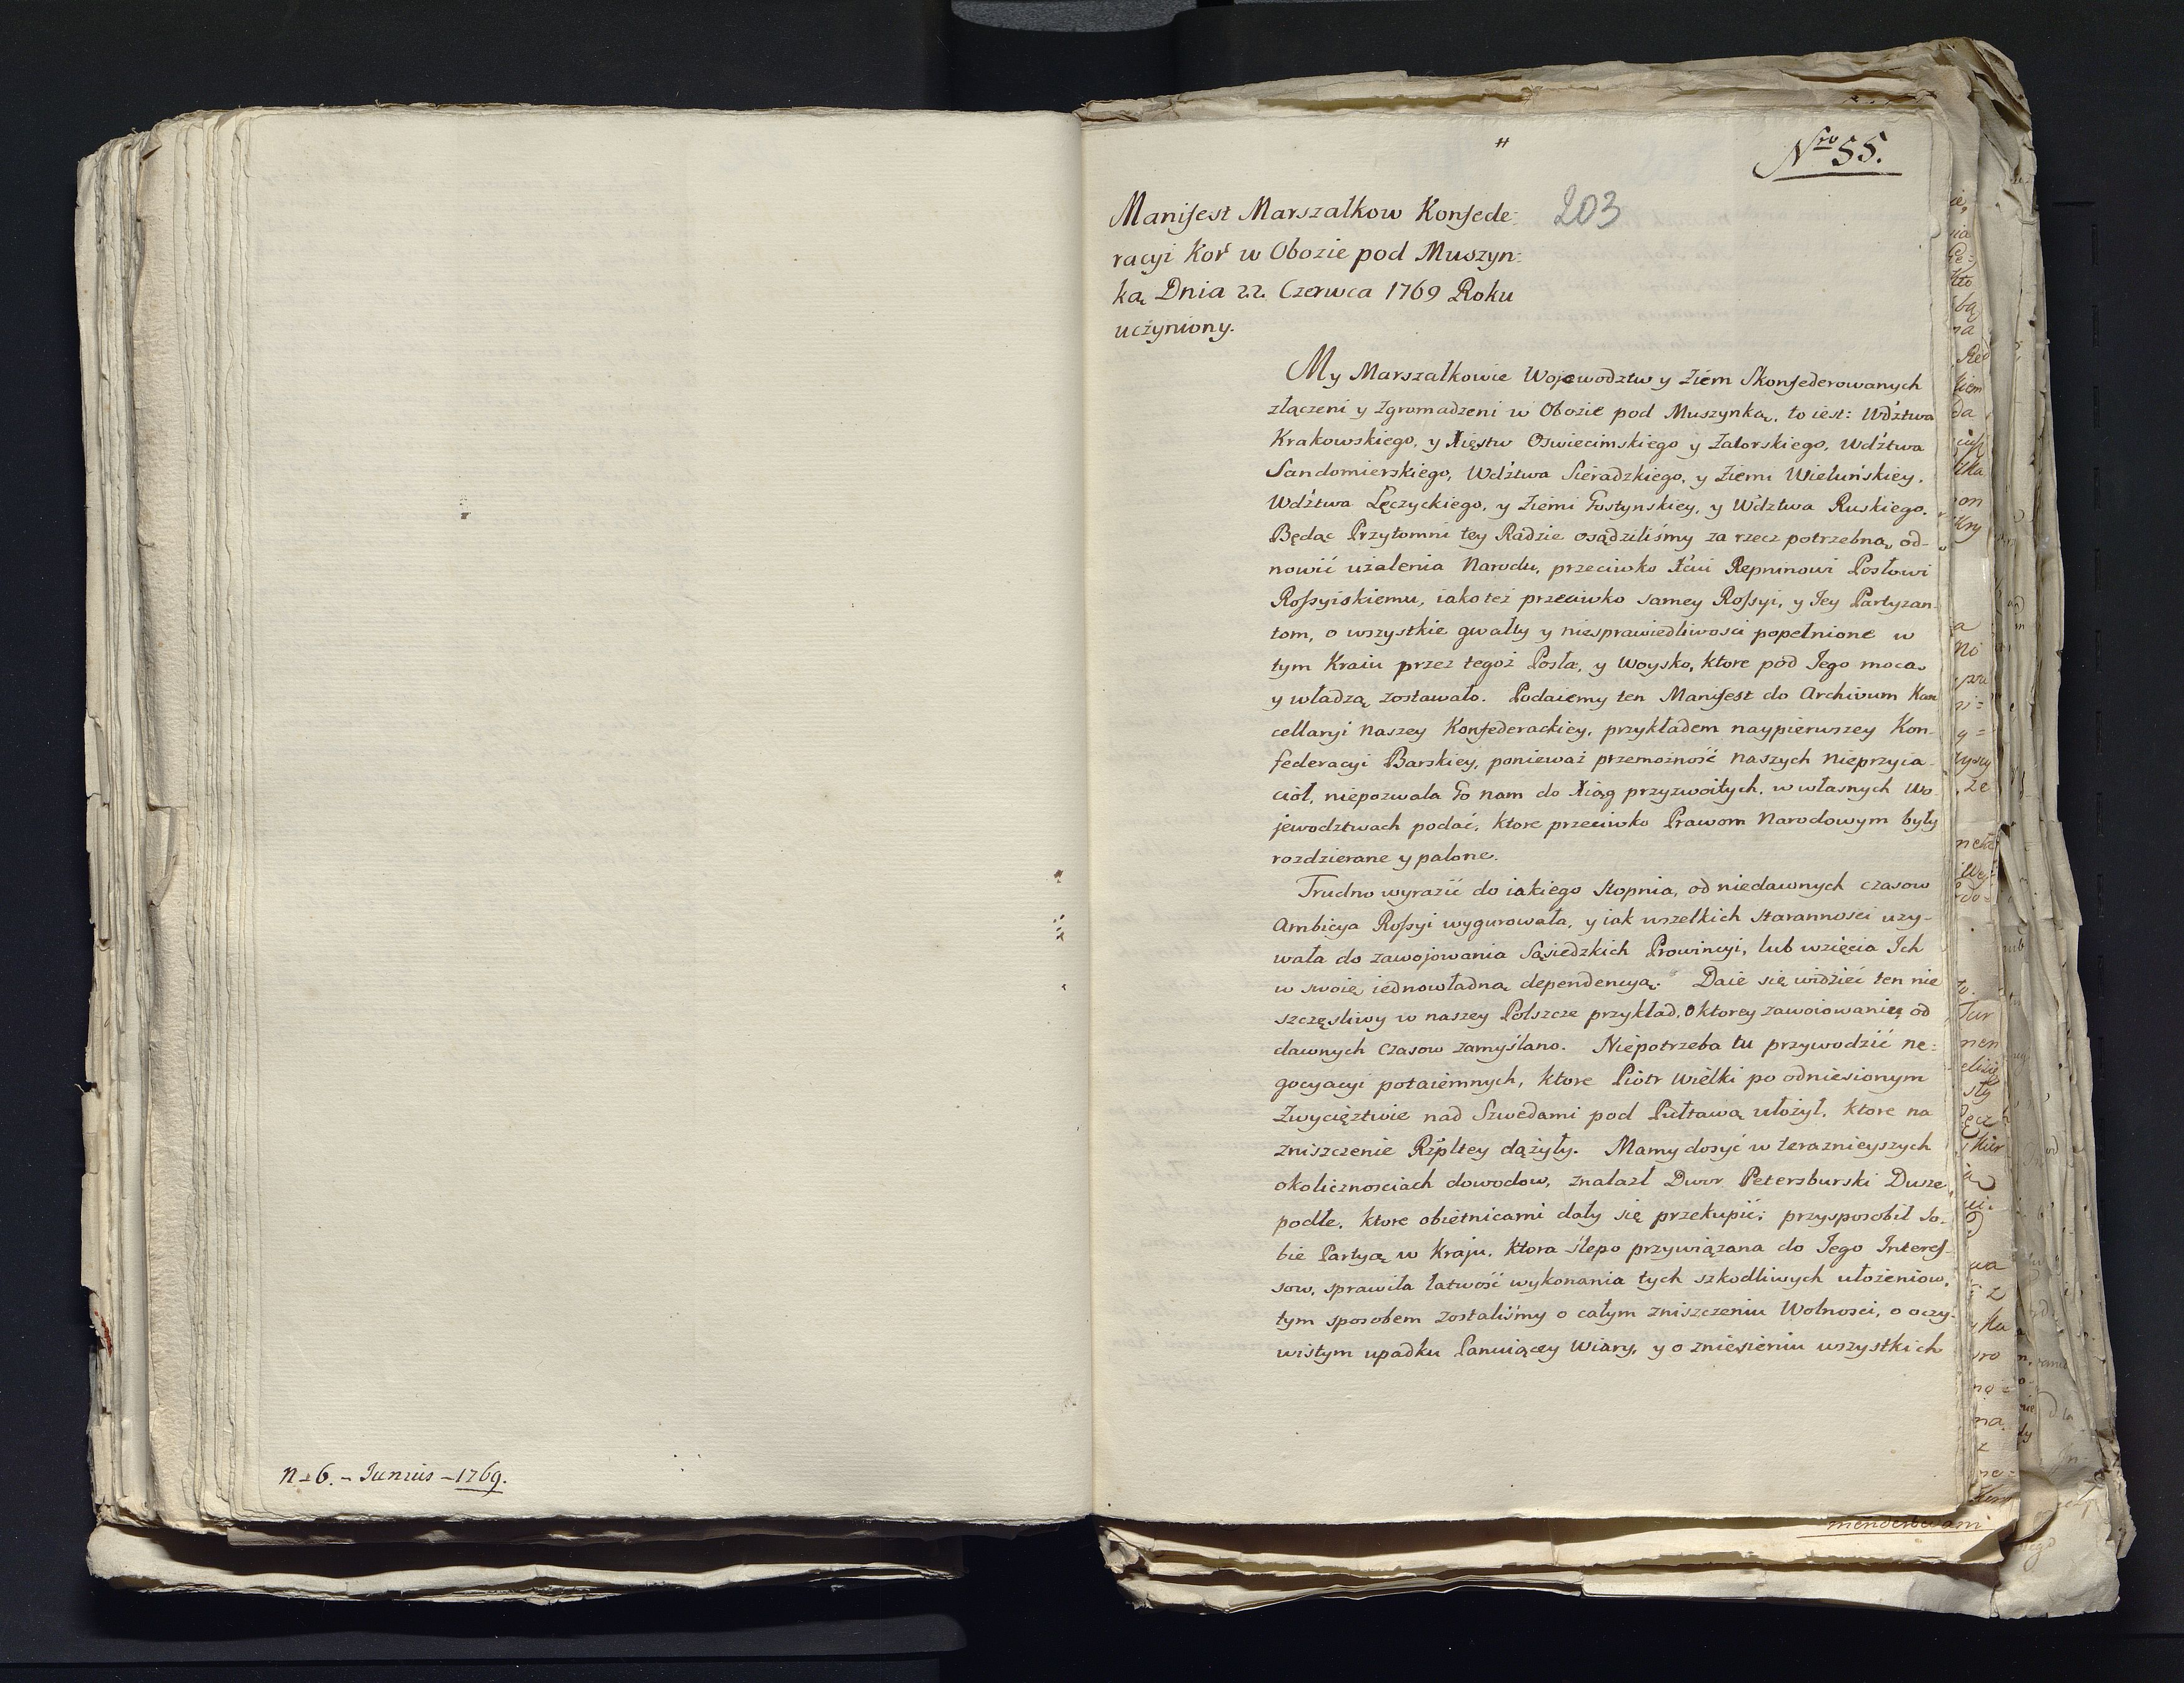 n-6. - Junius - 1769.
#
Nro 55.
203
Manifest Marszałkow Konfede-
racyi Kor w Obozie pod Muszyn-
ką Dnia 22 Czerwca 1769 Roku
uczyniony.
My Marszałkowie Wojewodztw y Ziem Skonfederowanych
złączeni y zgromadzeni w Obozie pod Muszynką, to iest: Wdztwa
Krakowskiego, y Xięstw Oswiecimskiego y Zatorskiego, Wdztwa
Sandomierskiego, Wdztwa Sieradzkiego, y Ziemi Wieluńskiey,
Wdztwa Lęczyckiego, y Ziemi Gostynskiey, y Wdztwa Ruskiego.
Będąc Przytomni tey Radzie osądziliśmy za rzecz potrzebną, od-
nowić użalenia Narodu, przeciwko Xciu Repninowi Posłowi
Rossyiskiemu, iako też przeciwko samey Rossyi, y Jey Partyzan-
tom, o wszystkie gwałty y niesprawiedliwosci popełnione w
tym Kraiu przez tegoż Posła, y Woysko, ktore pod Jego mocą
y władzą zostawało. Podaiemy ten Manifest do Archivum Kan
cellaryi naszey Konfederackiey, przykładem naypierwszey Kon-
federacyi Barskiey, ponieważ przemożność naszych Nieprzyia-
ciół, niepozwala Go nam do Xiąg przyzwoitych, w własnych Wo-
jewodztwach podać, ktore przeciwko Prawom Narodowym były
rozdzierane y palone.
Trudno wyrazić do iakiego stopnia, od niedawnych czasow
Ambicya Rossyi wygurowała, y iak wszelkich starannosci uzy-
wała do zawojowania Sąsiedzkich Prowincyi, lub wzięcia Ich
w swoię iednowładną dependencyą. Daie się widzieć ten nie
szczęsliwy w naszey Polszcze przykład, o ktorey zawoiowanię od
dawnych czasow zamyślano. Niepotrzeba tu przywodzić ne-
gocyacyi potaiemnych, ktore Piotr Wielki po odniesionym
Zwycięztwie nad Szwedami pod Pułtawą ułożył, ktore na
zniszczenie Rzpltey dążyły. Mamy dosyć w teraznieyszych
okolicznosciach dowodow, znalazł Dwor Petersburski Dusze
podłe, ktore obietnicami dały się przekupić; przysposobił so-
bie Partyą w Kraju, ktora slepo przywiązana do Jego Interes-
sow, sprawiła łatwość wykonania tych szkodliwych ułożeniow,
tym sposobem zostaliśmy o całym zniszczeniu Wolnosci, o oczy-
wistym upadku Panuiącey Wiary, y o zniesieniu wszystkich